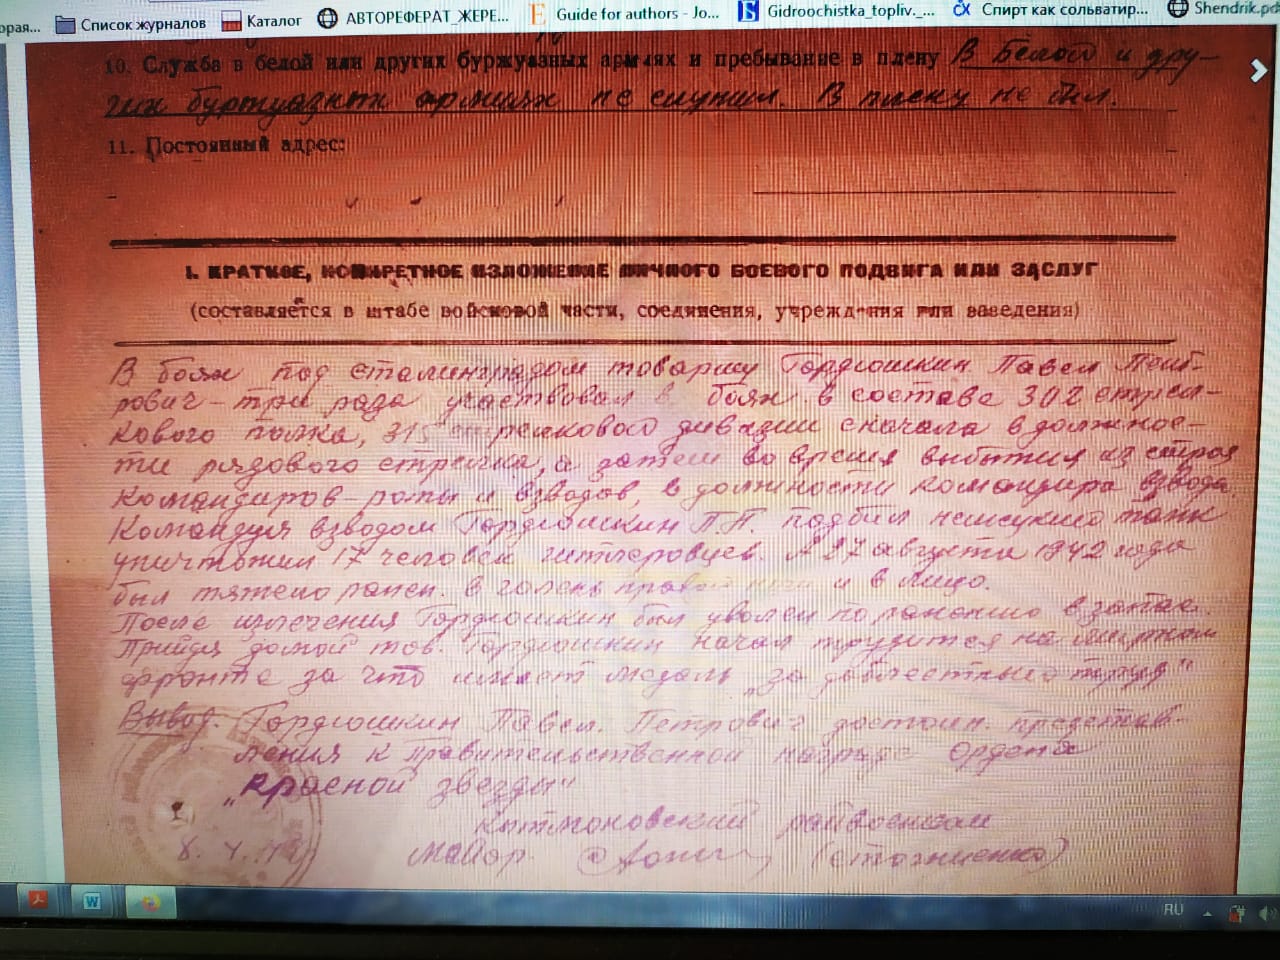 орая...
Список журналов
Каталог
АВТОРЕФЕРАТ_ЖЕРЕ...
Guide for authors - Jo...
Gidroochistka_topliv._...
Спирт как сольватир...
Shendrik.pd
10. Служба в белой или других буржуазных армиях и пребывание в плену В Белой и дру-
гих буржуазных армиях не служил. В плену не был.
11. Постоянный адрес:
I. КРАТКОЕ, КОНКРЕТНОЕ ИЗЛОЖЕНИЕ ЛИЧНОГО БОЕВОГО ПОДВИГА ИЛИ ЗАСЛУГ
(составляется в штабе войсковой части, соединения, учреждения или заведения)
В боях под Сталинградом товарищ Гордюшкин Павел Пет-
рович - три раза участвовал в боях в составе 302 стрел-
кового полка, 315 стрелкового дивизии сначала в должнос-
ти рядового стрелка, а затем во время выбытия из строя
командиров - роты и взводов, в должности командира взвода.
Командуя взводом Гордюшкин П.П. подбил немецкий танк
уничтожил 17 человек гитлеровцев. А 27 августа 1942 года
был тяжело ранен. в голень правой ноги и в лицо.
После излечения Гордюшкин был уволен по ранению в запас.
Прийдя домой тов. Гордюшкин начал трудится на мирном
фронте за что имеет медаль „за доблестный труд"
Вывод. Гордюшкин Павел. Петрович достоин. представ-
ления к правительственной награде Ордена
„Красной звезды"
Кытмановский райвоенком
Майор. (Стогниенко)
RU